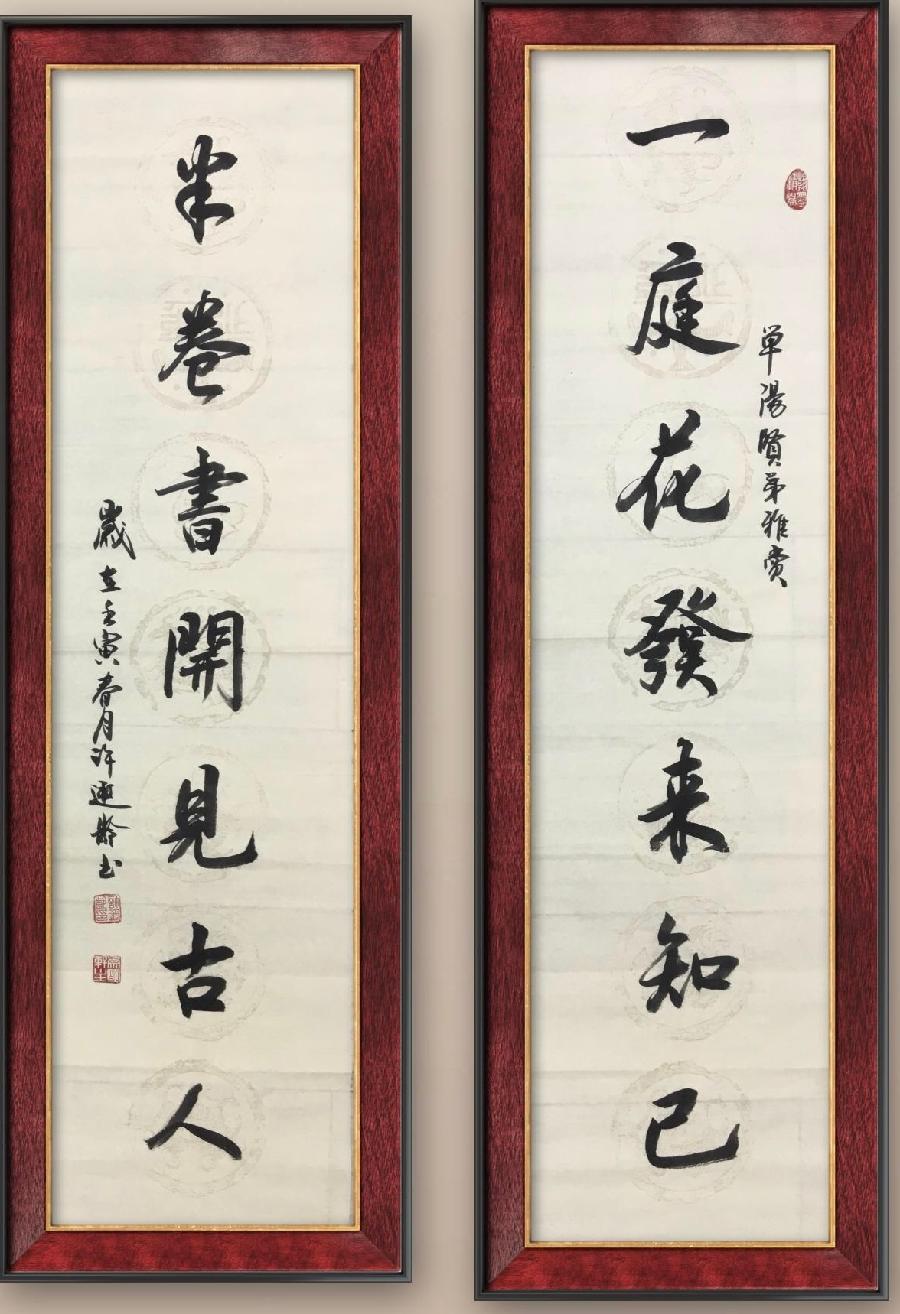 一庭花發来知已
単陽賢弟雅賞
半卷書開見古人
歲在壬寅春月許連齡书